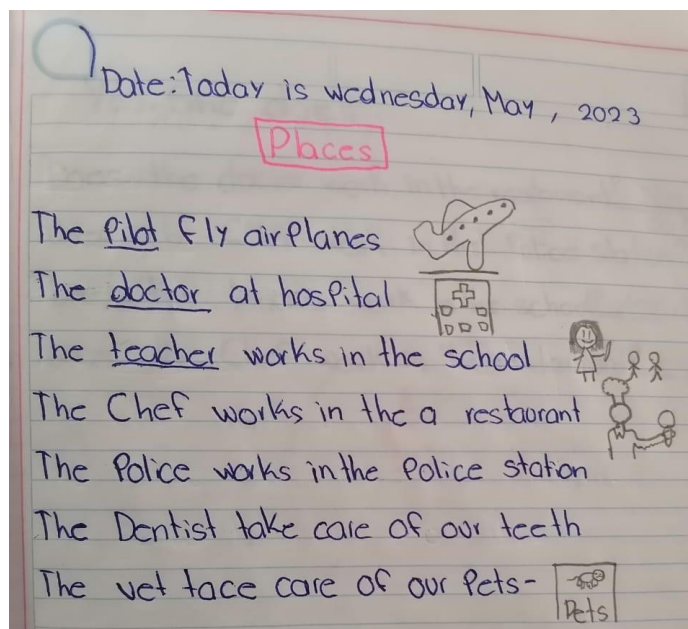 Date: Today is wednesday, May, 2023
Places
The Pilot fly airplanes
The doctor at hospital
The teacher works in the school
The Chef works in the a restaurant
The Police works in the Police station
The Dentist take care of our teeth
The vet tace care of our Pets-
Pets